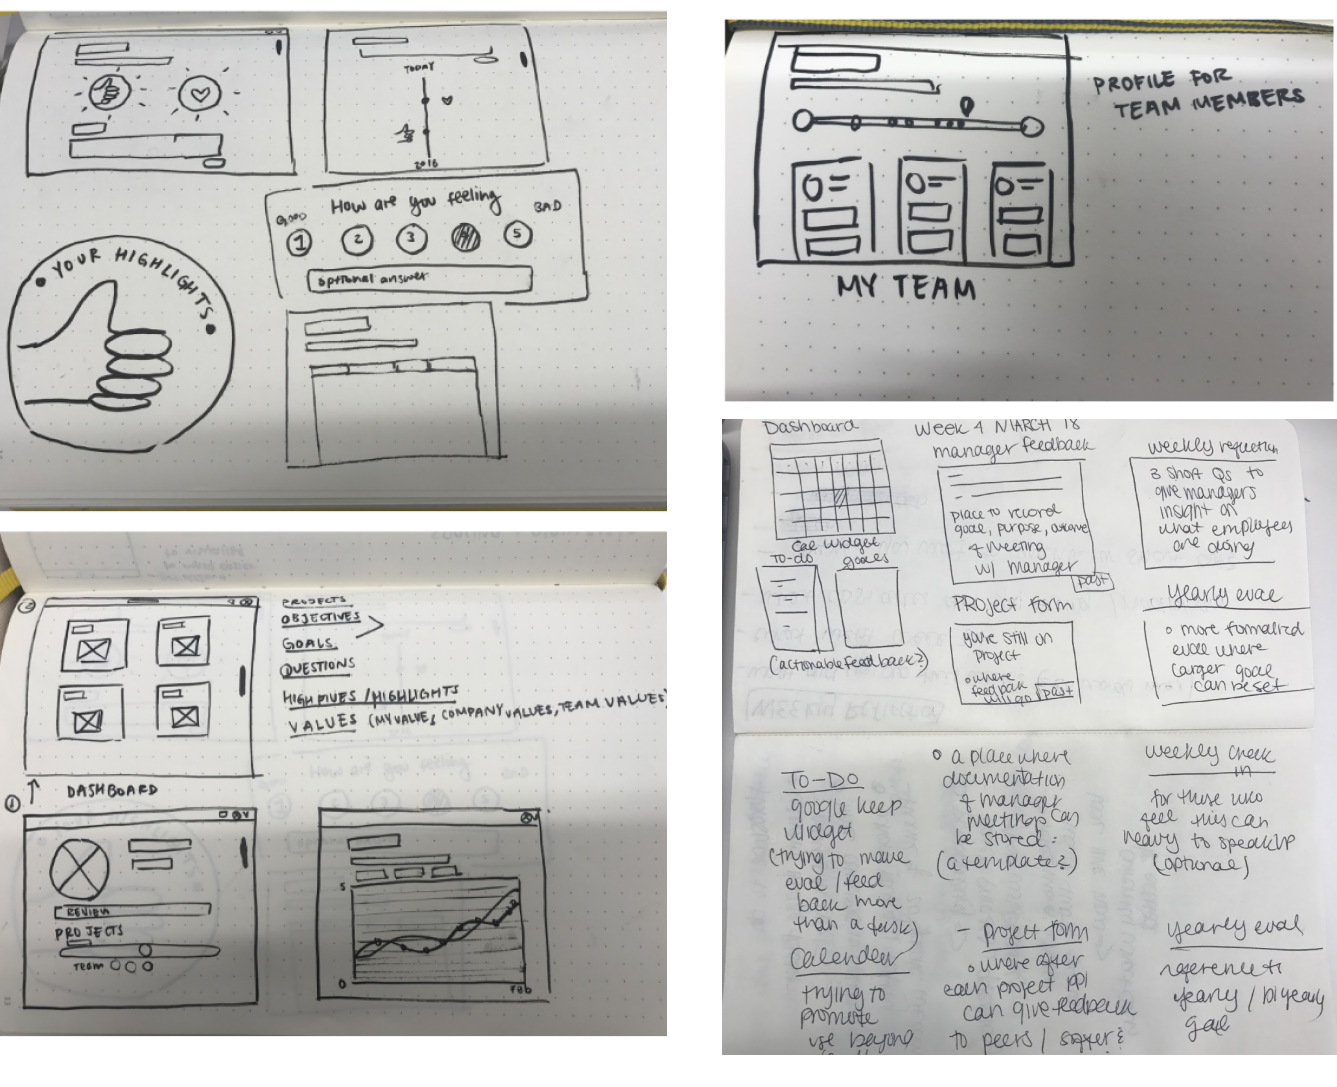 TODAY
2018
How are you feeling
GOOD
BAD
1
2
3
5
optional answer
• YOUR HIGHLIGHTS •
PROFILE FOR
TEAM MEMBERS
MY TEAM
2
PROJECTS
OBJECTIVES
GOALS
QUESTIONS
HIGH FIVES / HIGHLIGHTS
VALUES (MY VALUE, COMPANY VALUES, TEAM VALUES)
DASHBOARD
1
REVIEW
PROJECTS
TEAM
5
0
FEB
Dashboard
Cal Widget
TO-do
goals
(actionable feedback?)
Week 4 MARCH 18
manager feedback
place to record
goal, purpose,
of meeting
w/ manager
past
PROJect form
you're still on
project
• where
feedback
will go
past
weekly reflection
3 short Qs to
give managers
insight on
what employees
are doing
yearly eval
• more formalized
eval where
larger goal
can be set
TO-DO
google keep
widget
(trying to move
eval / feed
back more
than a task)
Calendar
trying to
promote
use beyond
• a place where
documentation
of manager
meetings can
be stored:
(a template?)
- project form
• where after
each project ppl
can give feedback
to peers /
weekly check
in
for those who
feel this can
ready to speak up
(optional)
yearly eval
reference to
yearly / biyearly
goal